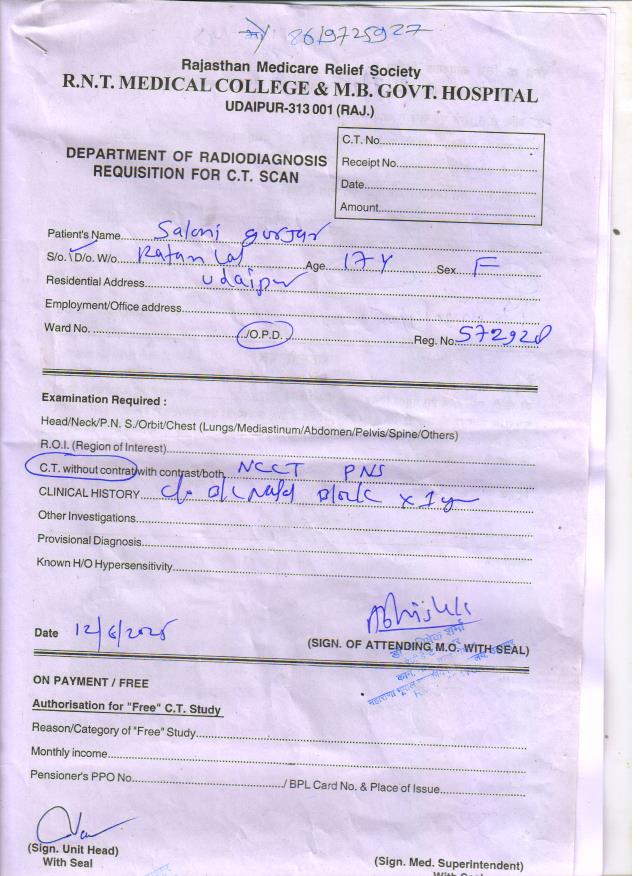 8619725927
Rajasthan Medicare Relief Society
R.N.T. MEDICAL COLLEGE & M.B. GOVT. HOSPITAL
UDAIPUR-313 001 (RAJ.)
C.T. No.
DEPARTMENT OF RADIODIAGNOSIS
REQUISITION FOR C.T. SCAN
Receipt No.
Date
Amount
Patient's Name Saloni gurjar
S/o. D/o. W/o. Ratan lal Age 17 Y Sex F
Residential Address Udaipur
Employment/Office address
Ward No. /O.P.D. Reg. No. 572928
Examination Required :
Head/Neck/P.N. S./Orbit/Chest (Lungs/Mediastinum/Abdomen/Pelvis/Spine/Others)
R.O.I. (Region of Interest)
C.T. without contrat/with contrast/both NCCT PNS
CLINICAL HISTORY c/o B/L Nasal Block x 1 yr
Other Investigations
Provisional Diagnosis
Known H/O Hypersensitivity
Abhishek
Date 12/6/2025
(SIGN. OF ATTENDING M.O. WITH SEAL)
ON PAYMENT / FREE
Authorisation for "Free" C.T. Study
Reason/Category of "Free" Study
Monthly income
Pensioner's PPO No. / BPL Card No. & Place of Issue
(Sign. Unit Head)
With Seal
(Sign. Med. Superintendent)
With Seal